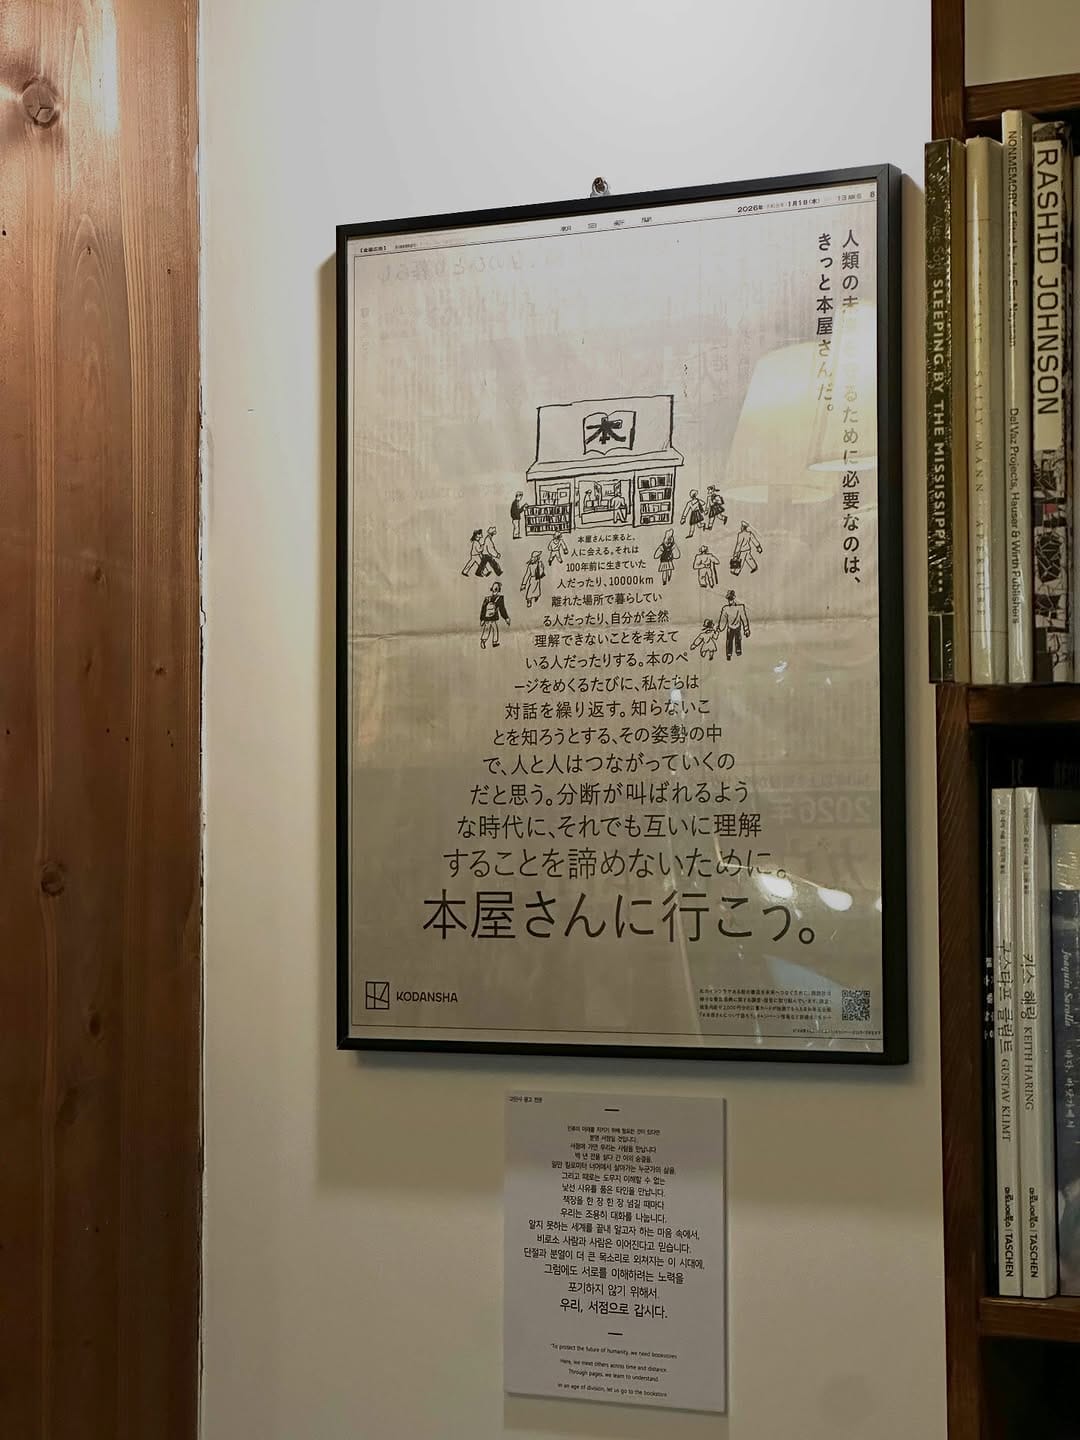 朝日新聞
2026年
1月1日(木)
人類の未 るために必要なのは、
きっと本屋さんだ。
本
本屋さんに来ると、
人に会える。それは
100年前に生きていた
人だったり、10000km
離れた場所で暮らしてい
る人だったり、自分が全然
理解できないことを考えて
いる人だったりする。本のペ
ージをめくるたびに、私たちは
対話を繰り返す。知らないこ
とを知ろうとする、その姿勢の中
で、人と人はつながっていくの
だと思う。分断が叫ばれるよう
な時代に、それでも互いに理解
することを諦めないために。
本屋さんに行こう。
KODANSHA
고단샤 광고 전문
인류의 미래를 지키기 위해 필요한 것이 있다면
분명 서점일 것입니다.
서점에 가면 우리는 사람을 만납니다
백 년 전을 살다 간 이의 숨결을,
일만 킬로미터 너머에서 살아가는 누군가의 삶을,
그리고 때로는 도무지 이해할 수 없는
낯선 사유를 품은 타인을 만납니다.
책장을 한 장 한 장 넘길 때마다
우리는 조용히 대화를 나눕니다.
알지 못하는 세계를 끝내 알고자 하는 마음 속에서,
비로소 사람과 사람은 이어진다고 믿습니다.
단절과 분열이 더 큰 목소리로 외쳐지는 이 시대에,
그럼에도 서로를 이해하려는 노력을
포기하지 않기 위해서.
우리, 서점으로 갑시다.
"To protect the future of humanity, we need bookstores
Here, we meet others across time and distance.
Through pages, we learn to understand.
In an age of division, let us go to the bookstore
SLEEPING BY THE MISSISSIPPI
SALLY MANN APERTURE
NONMEMORY
Del Vaz Projects, Hauser & Wirth Publishers
RASHID JOHNSON
구스타프 클림트 GUSTAV KLIMT
마로니에북스 | TASCHEN
키스 해링 KEITH HARING
마로니에북스 | TASCHEN
Joaquín Sorolla